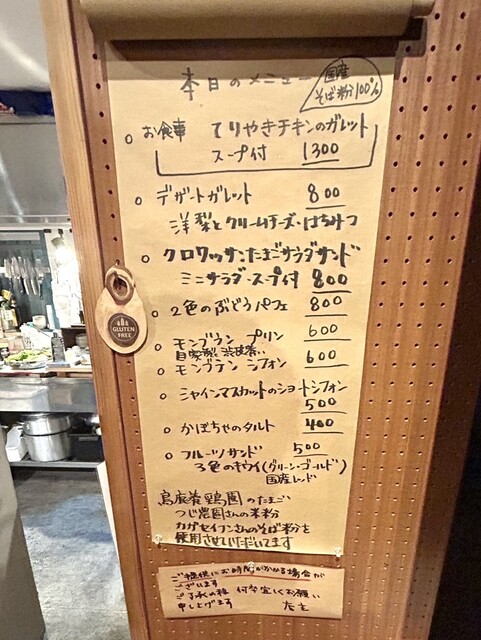 本日のメニュー
国産
そば粉100%
お食事 てりやきチキンのガレット
スープ付 1300
デザートガレット 800
洋梨とクリームチーズ・はちみつ
クロワッサンたまごサラダサンド
ミニサラダ・スープ付 800
2色のぶどうパフェ 800
モンブラン プリン 600
自家製 渋皮煮
モンブラン シフォン 600
シャインマスカットのショートシフォン
500
かぼちゃのタルト 400
フルーツサンド 500
3色のキウイ(グリーン・ゴールド)
国産レッド
養鶏園のたまご
つじ農園さんの米粉
カガセイフンさんのそば粉を
使用させていただいてます
GLUTEN
FREE
ご提供にお時間がかかる場合が
ございます
ご了承の程 何卒宜しくお願い
申し上げます 店主